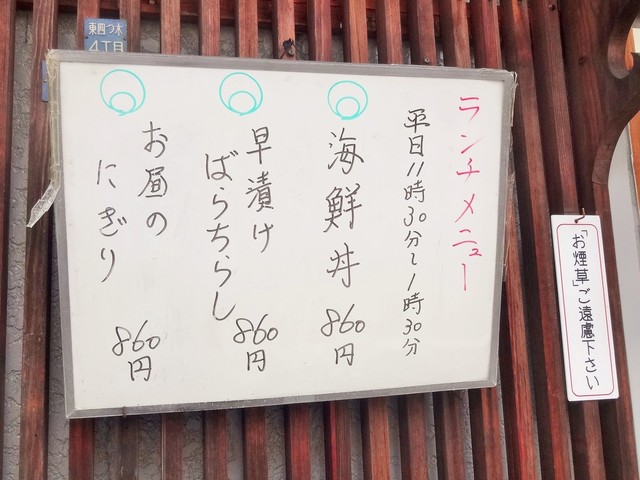 ランチメニュー
平日11時30分〜1時30分
海鮮丼
860円
早漬け
ばらちらし
860円
お昼の
にぎり
860円
東四つ木
4丁目
「お煙草」ご遠慮下さい